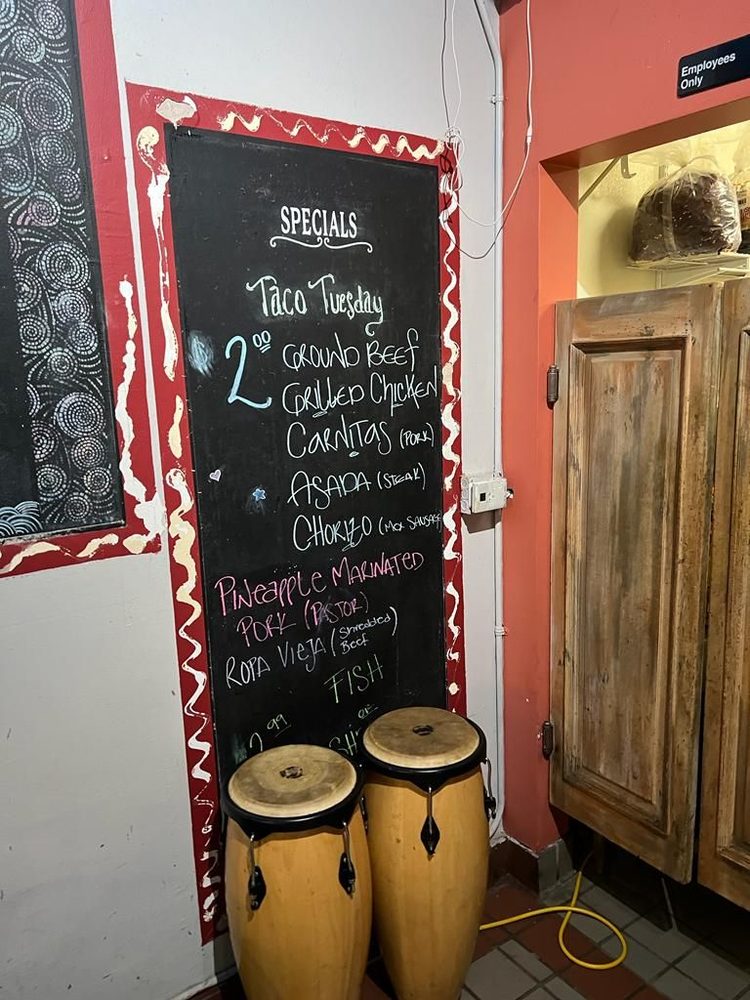 Employees
Only
SPECIALS
Taco Tuesday
2.00 GROUND BEEF
GRILLED CHICKEN
CARNITAS (PORK)
ASADA (STEAK)
CHORIZO (MEX SAUSAGE
PINEAPPLE MARINATED
PORK (PASTOR)
ROPA VIEJA (Shredded
Beef)
FISH
2.99 or
SH